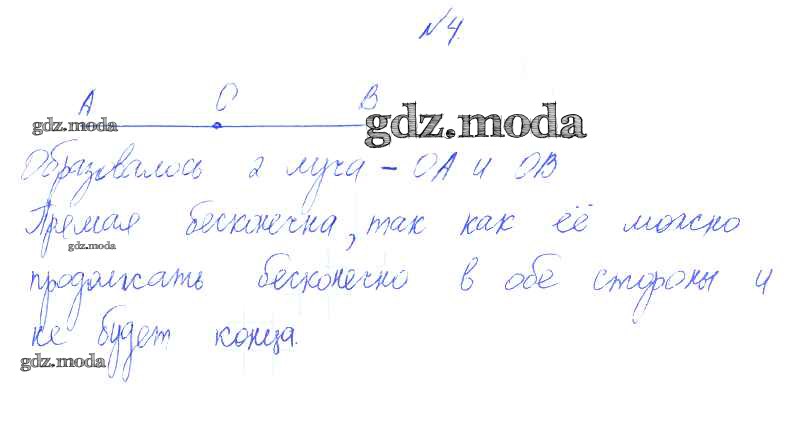 №4.
А С В
gdz.moda gdz.moda
Образовалось 2 луча – ОА и ОВ
Прямая бесконечна, так как её можно
gdz.moda
продолжать бесконечно в обе стороны и
не будет конца.
gdz.moda